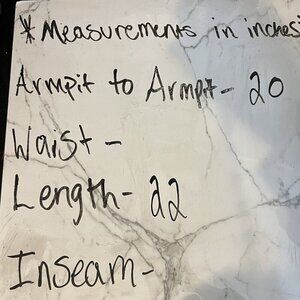 * Measurements in inches
Armpit to Armpit- 20
Waist -
Length- 22
Inseam-